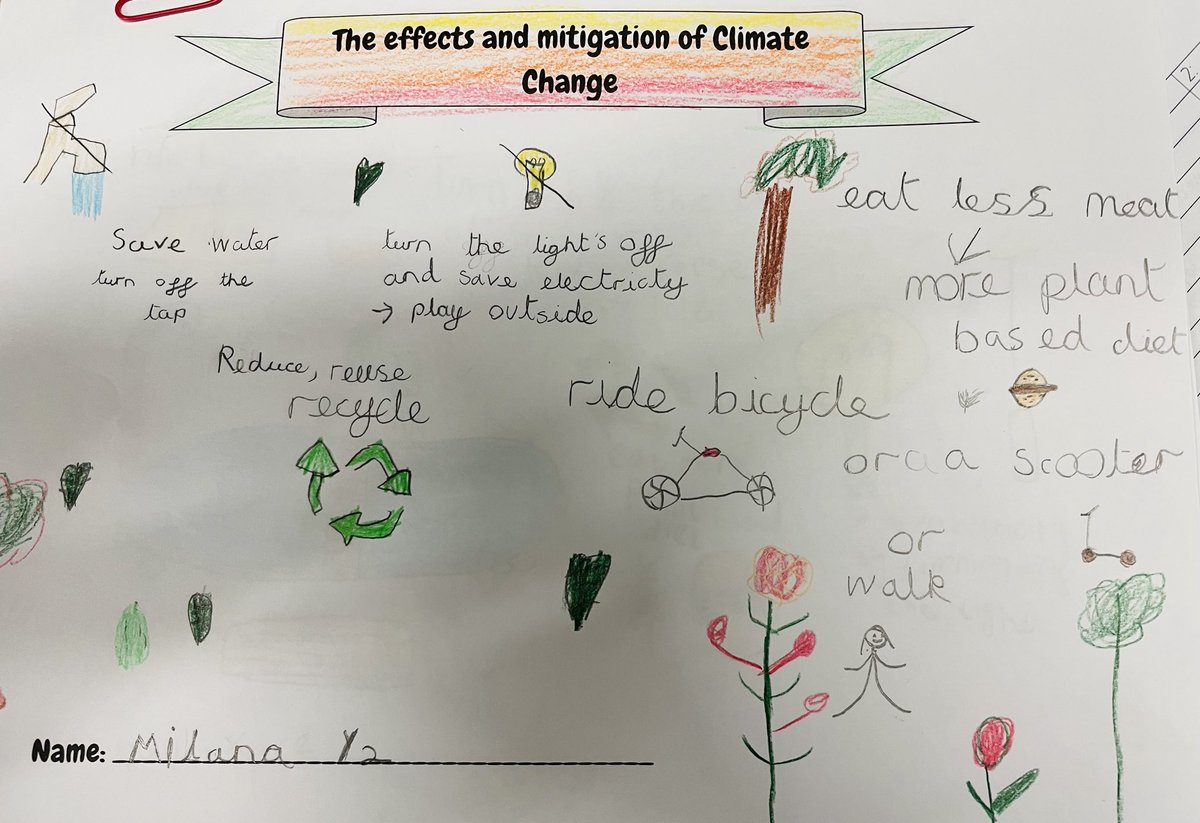 The effects and mitigation of Climate
Change
Save water
turn off the
tap
turn the light's off
and save electricty
→ play outside
eat less meat
more plant
based diet
Reduce, reuse
recycle
ride bicycle
or a a scooter
or
walk
Name: Milana Y2